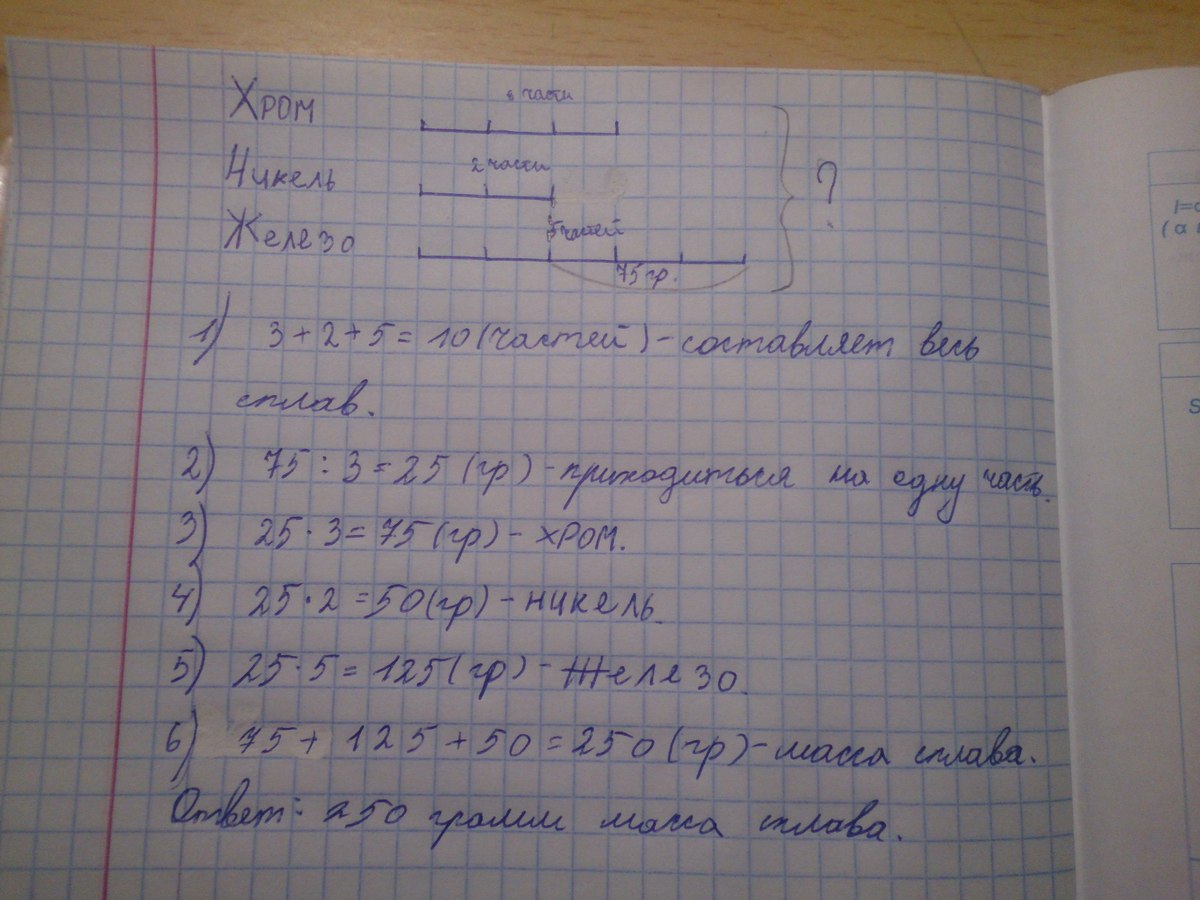 Хром
3 части
Никель
2 части
?
Железо
5 частей
75 гр.
1) 3+2+5=10(частей)-составляет весь
сплав.
2) 75:3=25(гр)-приходиться на одну часть.
3) 25·3=75(гр)-хром.
4) 25·2=50(гр)-никель.
5) 25·5=125(гр)-Железо.
6) 75+125+50=250(гр)-масса сплава.
Ответ: 250 грамм масса сплава.